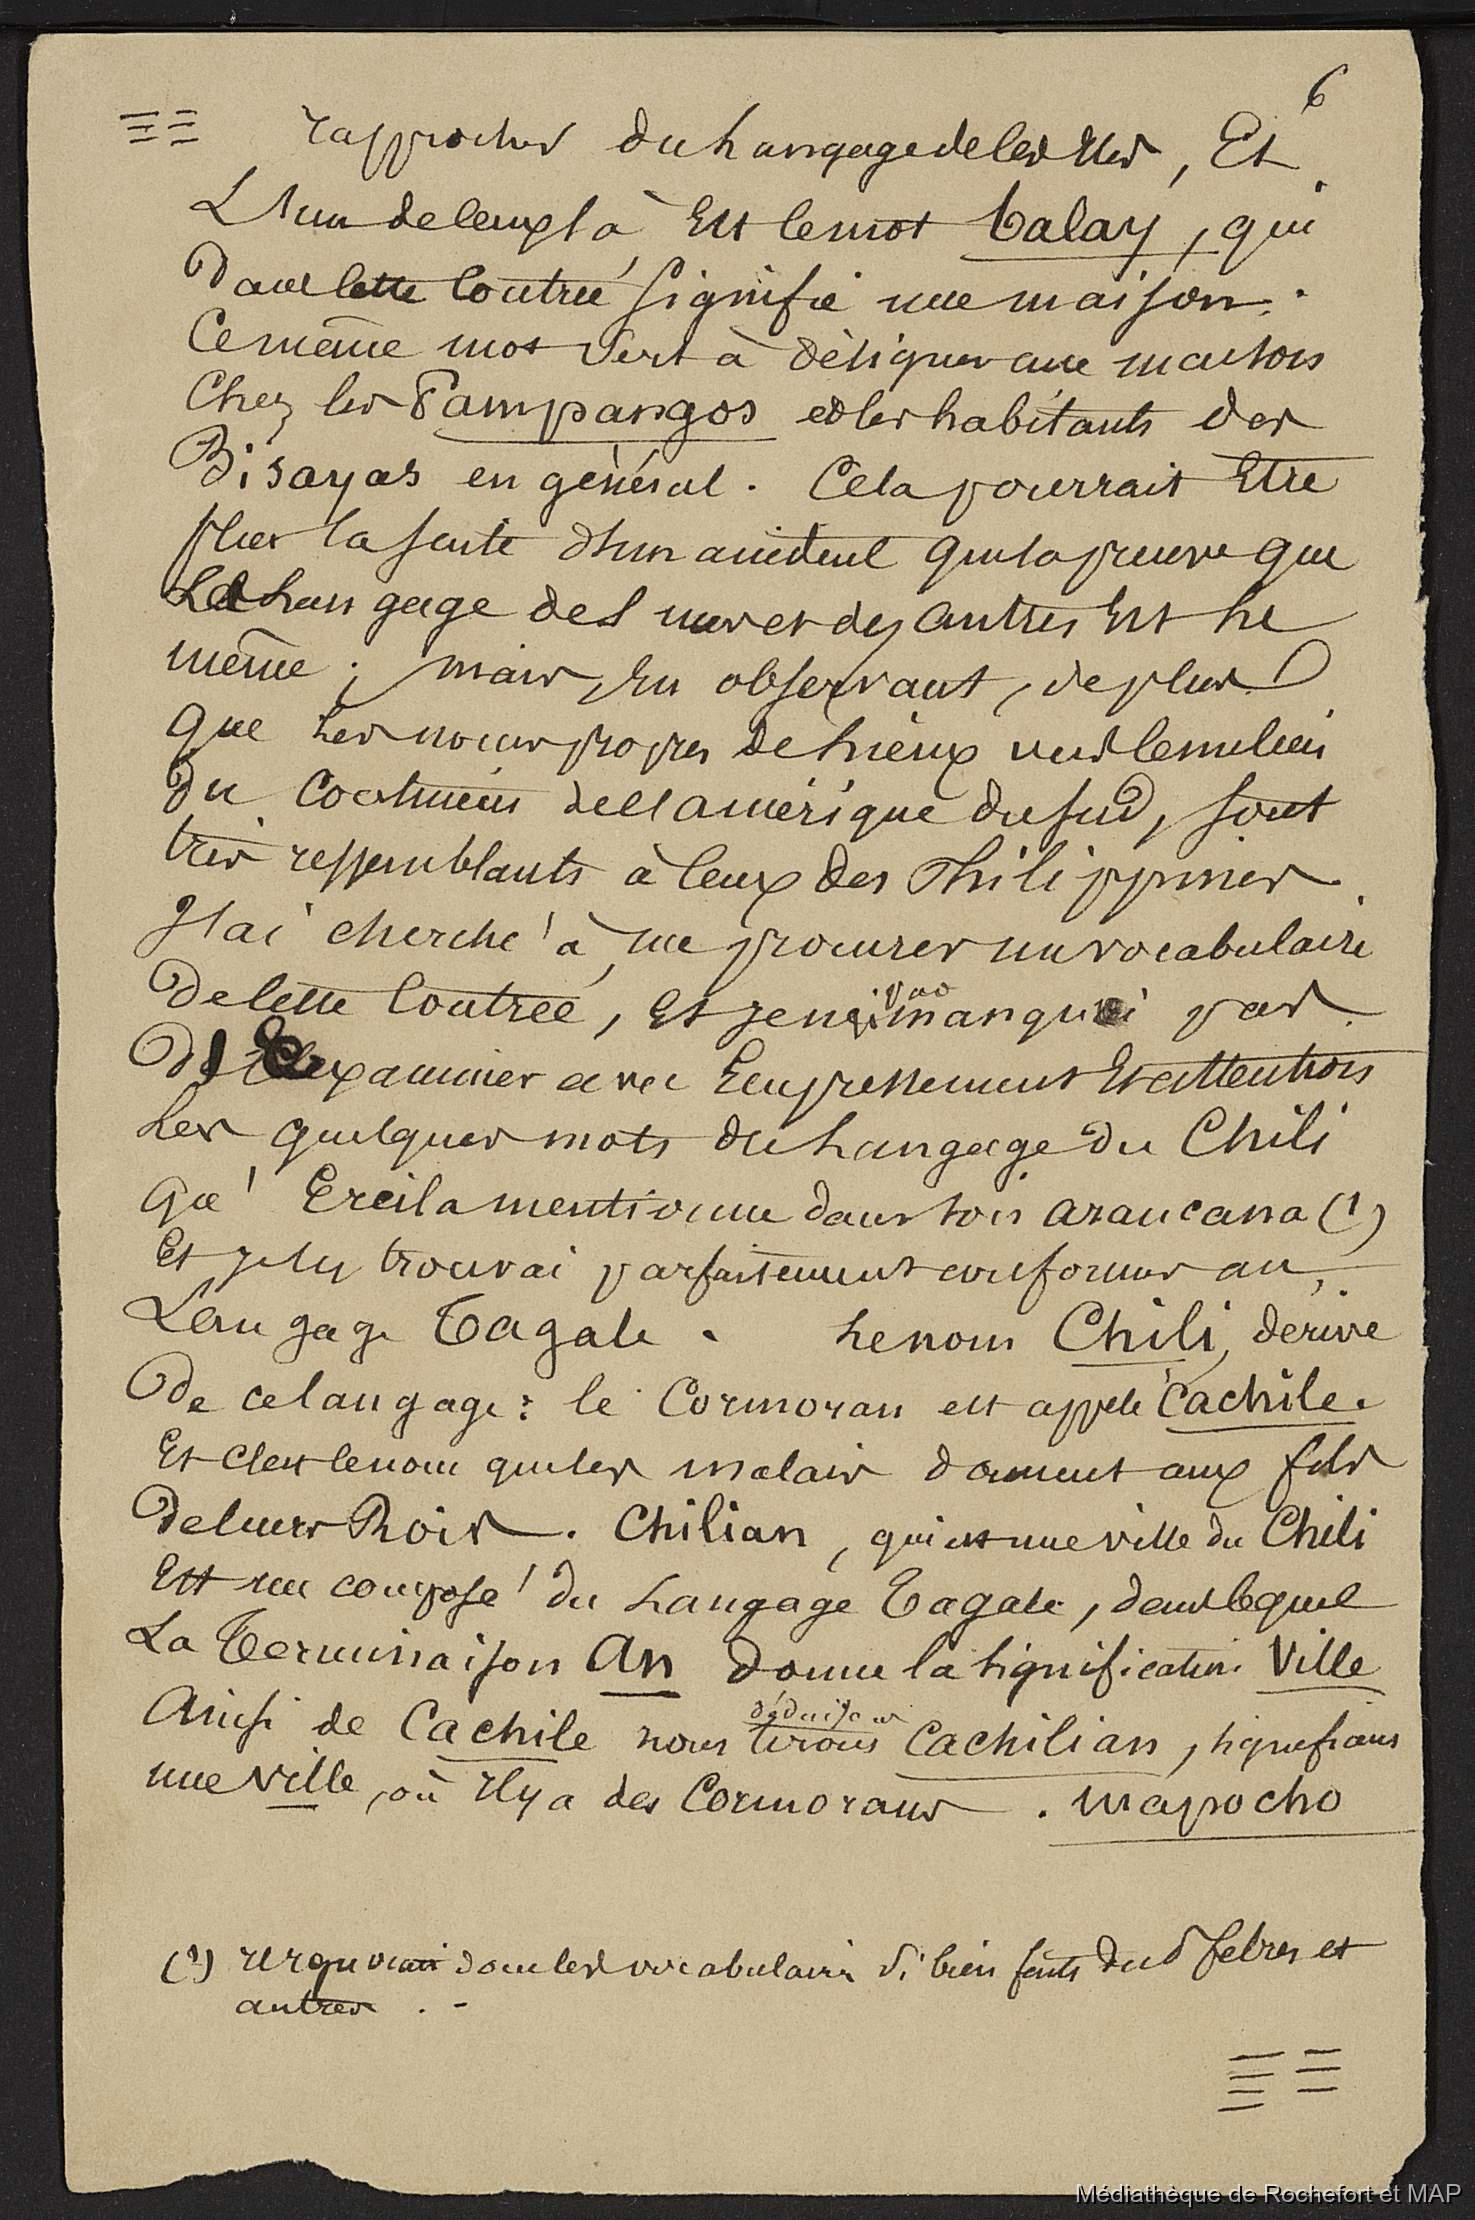 6
rapprocher du Langage de ces Iles, Et
L'un de ceux là Est le mot balay, qui
Dans cette Contrée signifie une maison.
Ce même mot sert à désigner une maison
Chez les Pampangos et les habitants des
Bisayas en général. Cela pourrait Etre
plus la suite d'un accident que la preuve que
Le Langage des uns et des autres Est Le
même ; mais, En observant, de plus
que Les noms propres de Lieux vers le milieu
Du Continent de l'amérique du sud, sont
très ressemblants à Ceux des Philippines.
J'ai cherché à me procurer un vocabulaire
De cette Contrée, Et je ne manquai pas
D'Examiner avec Empressement Et attention
Les quelques mots du Langage du Chili
que Ercila mentionne dans son araucana (1)
Et je les trouvai parfaitement conformes au
Langage Tagale. Le nom Chili, dérive
De ce langage : le Cormoran est appelé Cachile.
Et c'est le nom que les malais donnent aux fils
De leurs Rois. Chilian, qui est une ville du Chili
Est un composé du Langage Tagale, dans lequel
La Terminaison An donne la signification Ville
Ainsi de Cachile nous déduisons
tirons Cachilian, signifiant
une Ville, où Il y a des Cormorans. mapocho
(1) dans les vocabulaires si bien faits du P Febres et
autres. -
Médiathèque de Rochefort et MAP